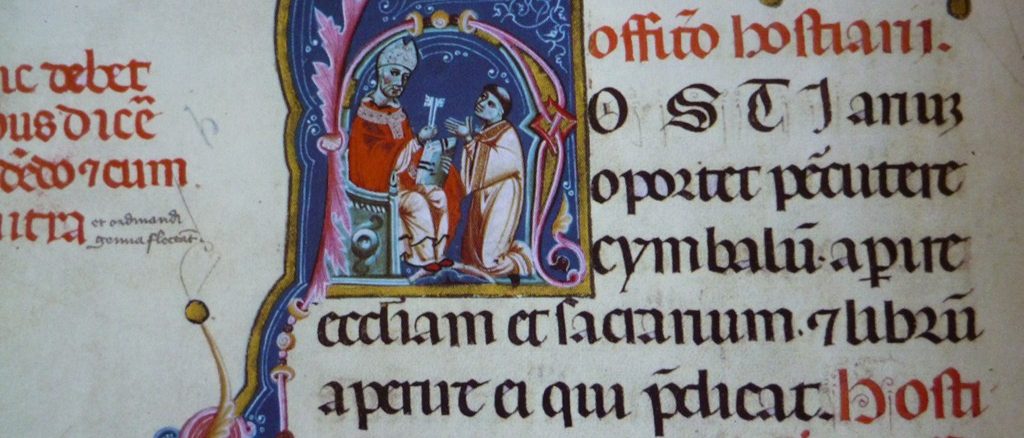 nc debet
bus dicē
dēdo ⁊ cum
mitra
et ordinandi
genua flectant.
offitō hostiarii.
OSTIarius
oportet p̄cutere
cymbalū. aꝑire
eccliam et sacrarium. ⁊ librū
aperire ei qui p̄dicat. Hosti